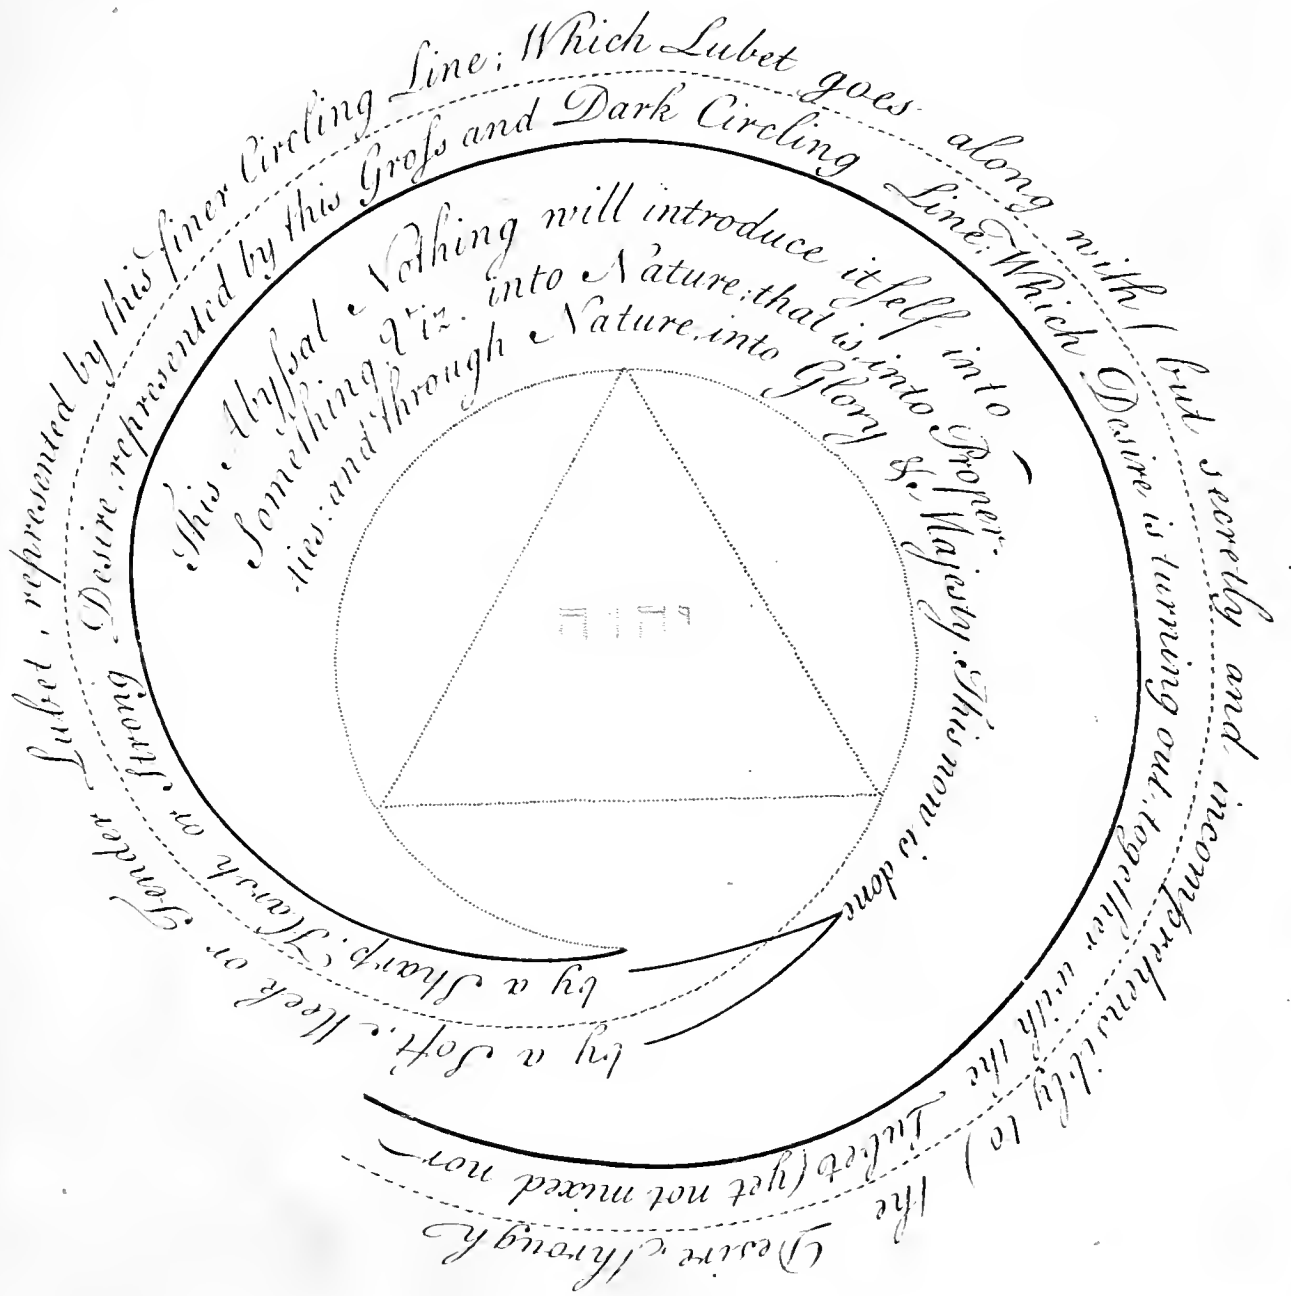 This Abyſsal Nothing will introduce itſelf into
Something, Viz. into Nature; that is, into Proper-
ties: and through Nature, into Glory &c Majesty. This now is done
by a Sharp, Harsh or Strong Desire, represented by this Groſs and Dark Circling Line; Which Desire is turning out, together with the Lubet (yet not mixed nor
by a Soft, Meek or Tender Lubet, represented by this finer Circling Line; Which Lubet goes along with (but secretly and incomprehensibly to) the Desire, through
יהוה